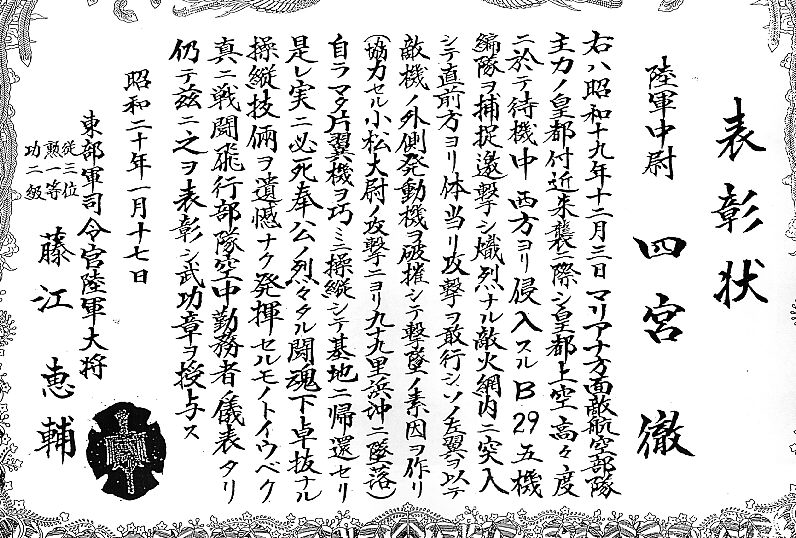 表彰状
陸軍中尉 四宮 徹
右ハ昭和十九年十二月三日マリアナ方面敵航空部隊
主力ノ皇都付近来襲ニ際シ皇都上空高々度
ニ於テ待機中西方ヨリ侵入スルB29五機
編隊ヲ捕捉邀撃シ熾烈ナル敵火網内ニ突入
シテ直前方ヨリ体当リ攻撃ヲ敢行シソノ左翼ヲ以テ
敵機ノ外側発動機ヲ破摧シテ撃墜ノ素因ヲ作リ
(協力セル小松大尉ノ攻撃ニヨリ九十九里浜沖ニ墜落)
自ラマタ片翼機ヲ巧ミニ操縦シテ基地ニ帰還セリ
是レ実ニ必死奉公ノ烈々タル闘魂ト卓抜ナル
操縦技倆ヲ遺憾ナク発揮セルモノトイウベク
真ニ戦闘飛行部隊空中勤務者ノ儀表タリ
仍テ茲ニ之ヲ表彰シ武功章ヲ授与ス
昭和二十年一月十七日
東部軍司令官陸軍大将
従三位
勲一等
功二級
藤江恵輔